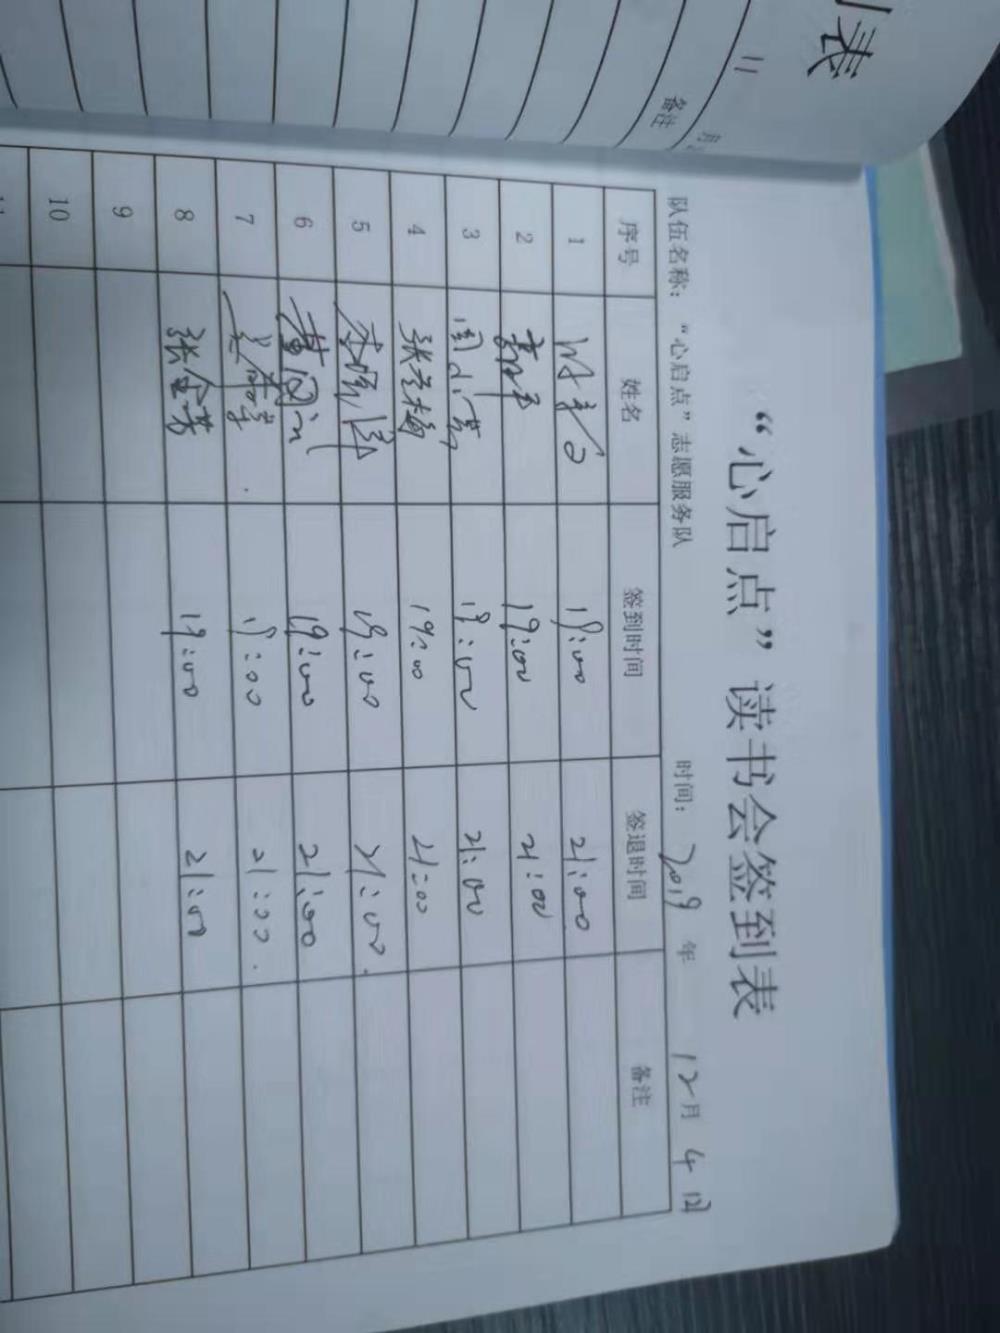 表
月
备注
“心启点”读书会签到表
队伍名称：“心启点”志愿服务队 时间：2019年 12月 4日
序号 姓名 签到时间 签退时间 备注
1 19:00 21:00
2 19:00 21:00
3 周小蒿 19:00 21:00
4 张荣梅 19:00 21:00
5 19:00 21:00
6 19:00 21:00
7 19:00 21:00
8 张金芳 19:00 21:00
9
10
11